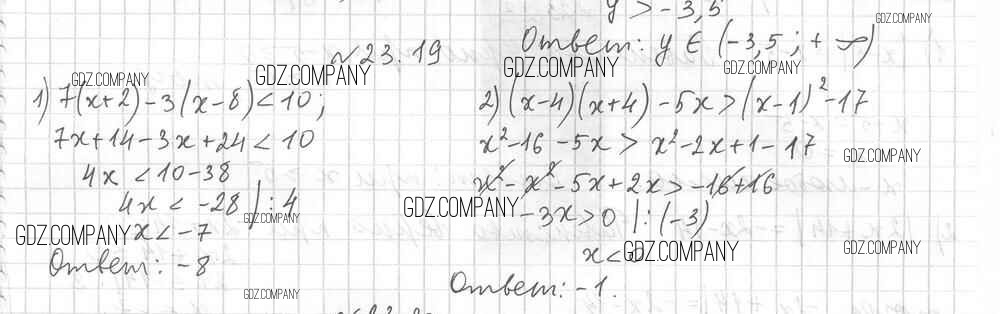 y > -3,5
Ответ: y ∈ (-3,5 ; +∞)
№ 23.19
1) 7(x+2)-3(x-8)<10;
7x+14-3x+24<10
4x <10-38
4x < -28 | : 4
x<-7
Ответ: -8
2) (x-4)(x+4)-5x>(x-1)²-17
x²-16-5x > x²-2x+1-17
x²-x²-5x+2x>-16+16
-3x>0 |:(-3)
x<
Ответ: -1.
GDZ.COMPANY
GDZ.COMPANY
GDZ.COMPANY
GDZ.COMPANY
GDZ.COMPANY
GDZ.COMPANY
GDZ.COMPANY
GDZ.COMPANY
GDZ.COMPANY
GDZ.COMPANY
GDZ.COMPANY
GDZ.COMPANY